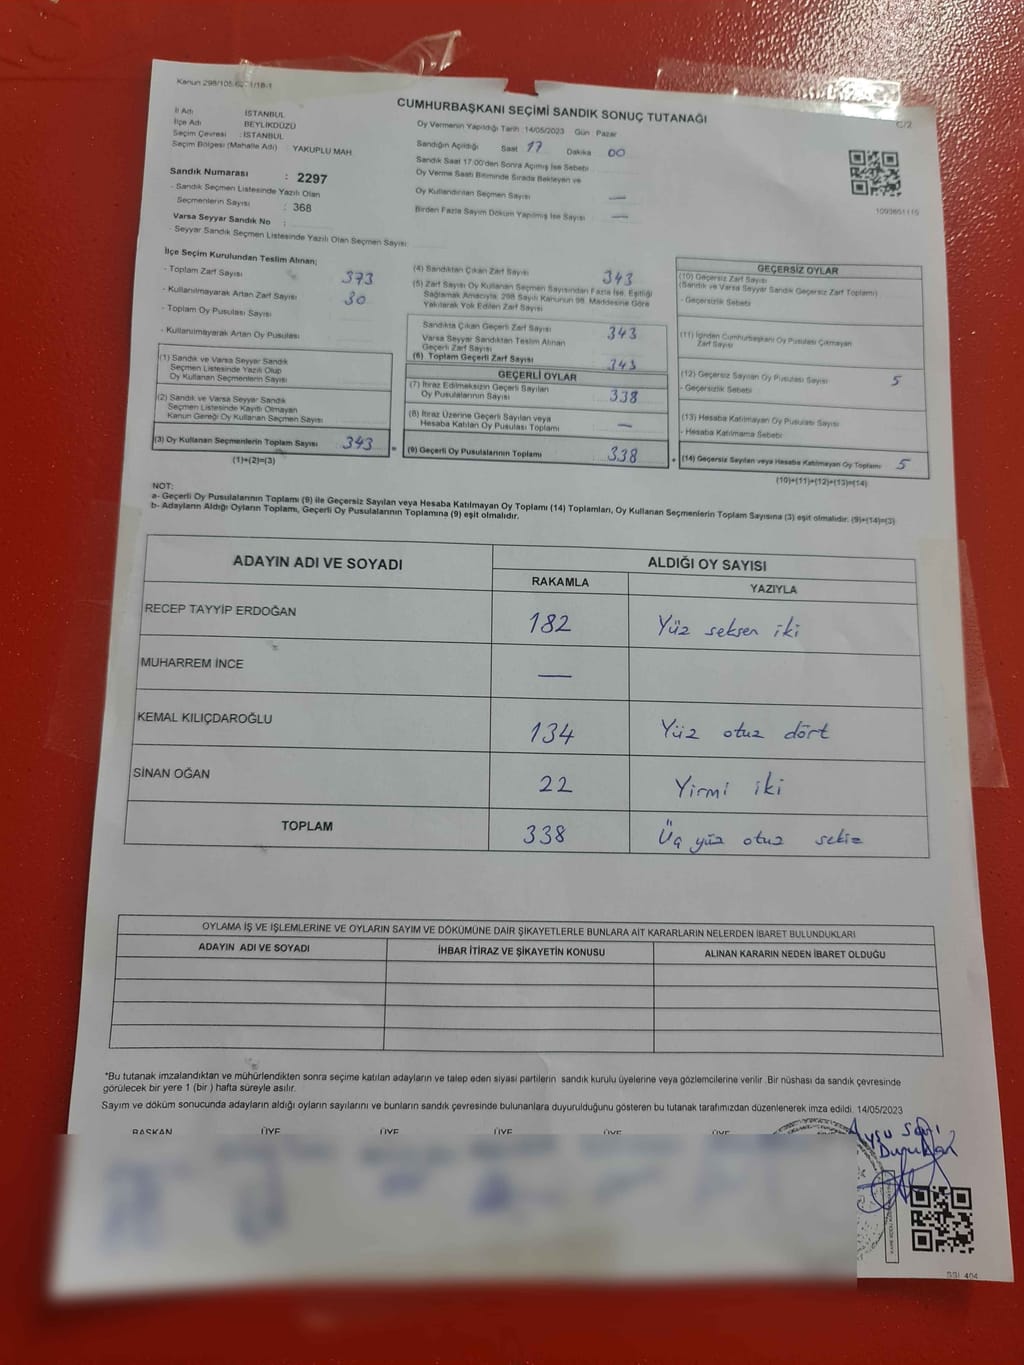 Kanun 298/105
CUMHURBAŞKANI SEÇİMİ SANDIK SONUÇ TUTANAĞI
C/2
İl Adı İSTANBUL
İlçe Adı BEYLİKDÜZÜ
Seçim Çevresi : İSTANBUL
Seçim Bölgesi (Mahalle Adı) : YAKUPLU MAH.
Sandık Numarası : 2297
- Sandık Seçmen Listesinde Yazılı Olan
Seçmenlerin Sayısı : 368
Varsa Seyyar Sandık No :
- Seyyar Sandık Seçmen Listesinde Yazılı Olan Seçmen Sayısı:
Oy Vermenin Yapıldığı Tarih :14/05/2023 Gün Pazar
Sandığın Açıldığı Saat 17 Dakika 00
Sandık Saat 17:00'den Sonra Açılmış İse Sebebi
Oy Verme Saati Bitiminde Sırada Bekleyen ve
Oy Kullandırılan Seçmen Sayısı —
Birden Fazla Sayım Döküm Yapılmış İse Sayısı —
1093651115
İlçe Seçim Kurulundan Teslim Alınan;
- Toplam Zarf Sayısı 373
- Kullanılmayarak Artan Zarf Sayısı 30
- Toplam Oy Pusulası Sayısı
- Kullanılmayarak Artan Oy Pusulası
(1) Sandık ve Varsa Seyyar Sandık
Seçmen Listesinde Yazılı Olup
Oy Kullanan Seçmenlerin Sayısı
(2) Sandık ve Varsa Seyyar Sandık
Seçmen Listesinde Kayıtlı Olmayan
Kanun Gereği Oy Kullanan Seçmen Sayısı
(3) Oy Kullanan Seçmenlerin Toplam Sayısı 343 =
(1)+(2)=(3)
(4) Sandıktan Çıkan Zarf Sayısı 343
(5) Zarf Sayısı Oy Kullanan Seçmen Sayısından Fazla İse, Eşitliği
Sağlamak Amacıyla, 298 Sayılı Kanunun 98. Maddesine Göre
Yakılarak Yok Edilen Zarf Sayısı
Sandıkta Çıkan Geçerli Zarf Sayısı 343
Varsa Seyyar Sandıktan Teslim Alınan
Geçerli Zarf Sayısı
(6) Toplam Geçerli Zarf Sayısı 343
GEÇERLİ OYLAR
(7) İtiraz Edilmeksizin Geçerli Sayılan
Oy Pusulalarının Sayısı 338
(8) İtiraz Üzerine Geçerli Sayılan veya
Hesaba Katılan Oy Pusulası Toplamı —
(9) Geçerli Oy Pusulalarının Toplamı 338 +
GEÇERSİZ OYLAR
(10) Geçersiz Zarf Sayısı
(Sandık ve Varsa Seyyar Sandık Geçersiz Zarf Toplamı)
- Geçersizlik Sebebi
(11) İçinden Cumhurbaşkanı Oy Pusulası Çıkmayan
Zarf Sayısı
(12) Geçersiz Sayılan Oy Pusulası Sayısı 5
- Geçersizlik Sebebi
(13) Hesaba Katılmayan Oy Pusulası Sayısı
- Hesaba Katılmama Sebebi
(14) Geçersiz Sayılan veya Hesaba Katılmayan Oy Toplamı 5
(10)+(11)+(12)+(13)=(14)
NOT:
a- Geçerli Oy Pusulalarının Toplamı (9) ile Geçersiz Sayılan veya Hesaba Katılmayan Oy Toplamı (14) Toplamları, Oy Kullanan Seçmenlerin Toplam Sayısına (3) eşit olmalıdır. (9)+(14)=(3)
b- Adayların Aldığı Oyların Toplamı, Geçerli Oy Pusulalarının Toplamına (9) eşit olmalıdır.
ADAYIN ADI VE SOYADI ALDIĞI OY SAYISI
RAKAMLA YAZIYLA
RECEP TAYYİP ERDOĞAN 182 Yüz seksen iki
MUHARREM İNCE —
KEMAL KILIÇDAROĞLU 134 Yüz otuz dört
SİNAN OĞAN 22 Yirmi iki
TOPLAM 338 Üç yüz otuz sekiz
OYLAMA İŞ VE İŞLEMLERİNE VE OYLARIN SAYIM VE DÖKÜMÜNE DAİR ŞİKAYETLERLE BUNLARA AİT KARARLARIN NELERDEN İBARET BULUNDUKLARI
ADAYIN ADI VE SOYADI İHBAR İTİRAZ VE ŞİKAYETİN KONUSU ALINAN KARARIN NEDEN İBARET OLDUĞU
*Bu tutanak imzalandıktan ve mühürlendikten sonra seçime katılan adayların ve talep eden siyasi partilerin sandık kurulu üyelerine veya gözlemcilerine verilir. Bir nüshası da sandık çevresinde
görülecek bir yere 1 (bir) hafta süreyle asılır.
Sayım ve döküm sonucunda adayların aldığı oyların sayılarını ve bunların sandık çevresinde bulunanlara duyurulduğunu gösteren bu tutanak tarafımızdan düzenlenerek imza edildi. 14/05/2023
BAŞKAN ÜYE ÜYE ÜYE ÜYE ÜYE